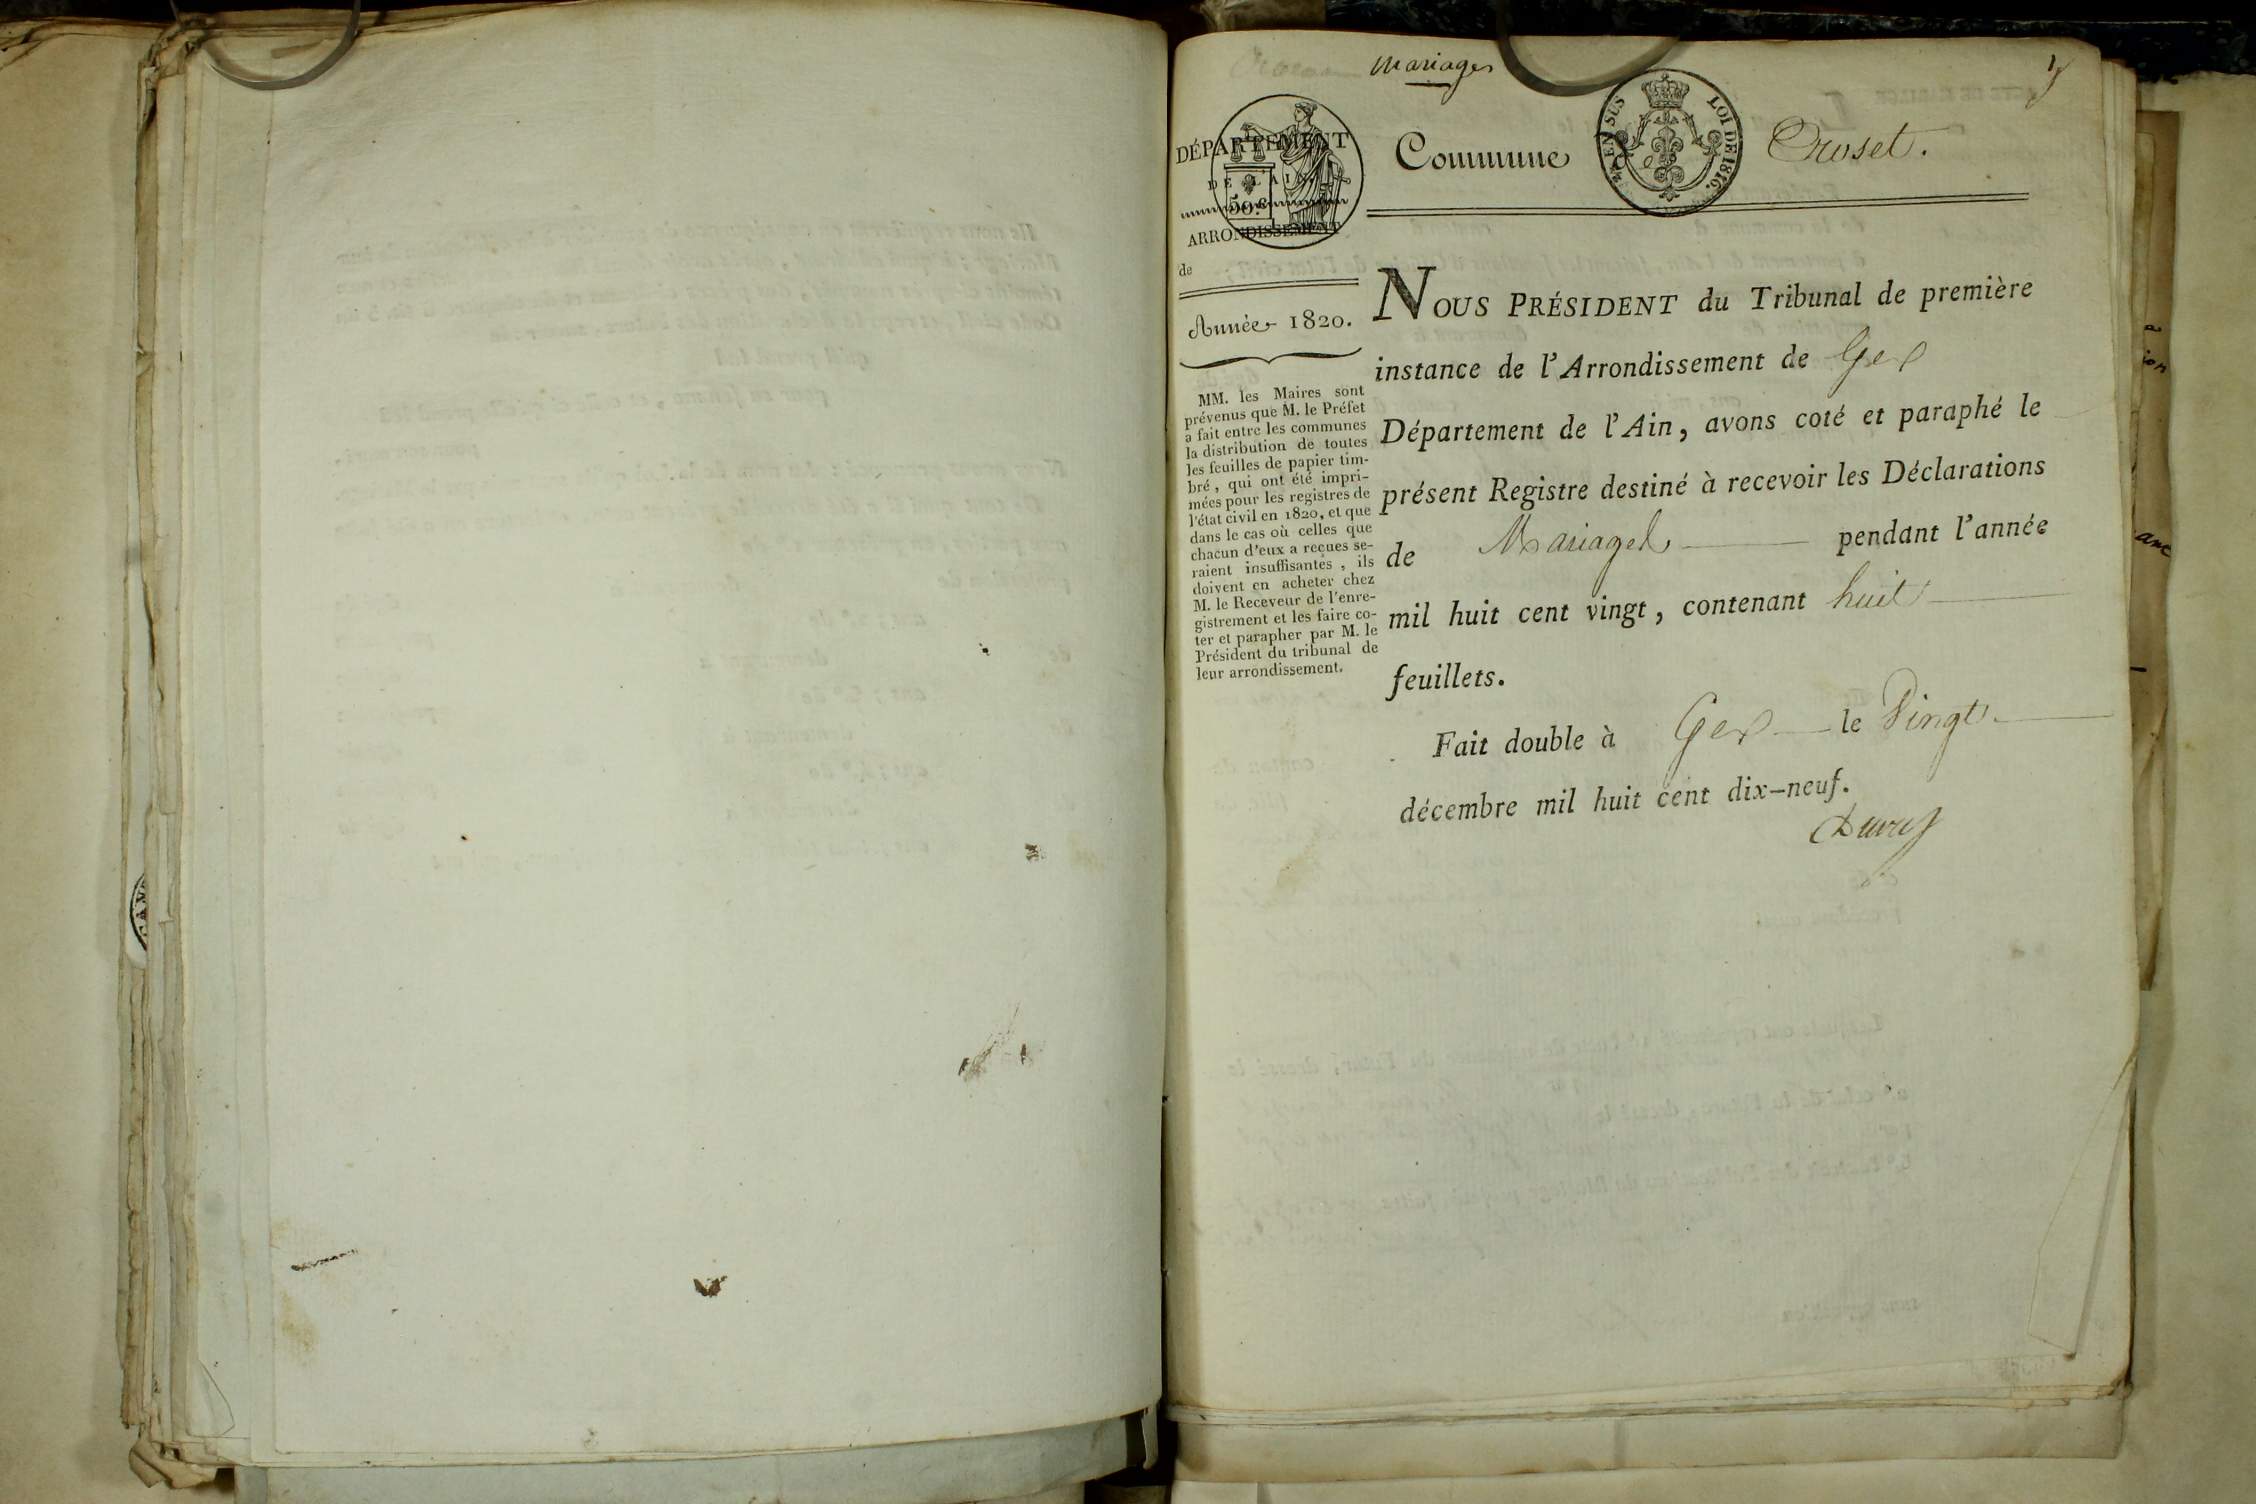 Mariages
DÉPARTEMENT
DE L'AIN.
50.c
ARRONDISSEMENT
de
Année 1820.
MM. les Maires sont
prévenus que M. le Préfet
a fait entre les communes
la distribution de toutes
les feuilles de papier tim-
bré, qui ont été impri-
mées pour les registres de
l'état civil en 1820, et que
dans le cas où celles que
chacun d'eux a reçues se-
raient insuffisantes, ils
doivent en acheter chez
M. le Receveur de l'enre-
gistrement et les faire co-
ter et parapher par M. le
Président du tribunal de
leur arrondissement.
Commune
EN SUS LOI DE 1816.
Croset.
NOUS PRÉSIDENT du Tribunal de première
instance de l'Arrondissement de Gex
Département de l'Ain, avons coté et paraphé le
présent Registre destiné à recevoir les Déclarations
de Mariages pendant l'année
mil huit cent vingt, contenant huit
feuillets.
Fait double à Gex le Vingt
décembre mil huit cent dix-neuf.